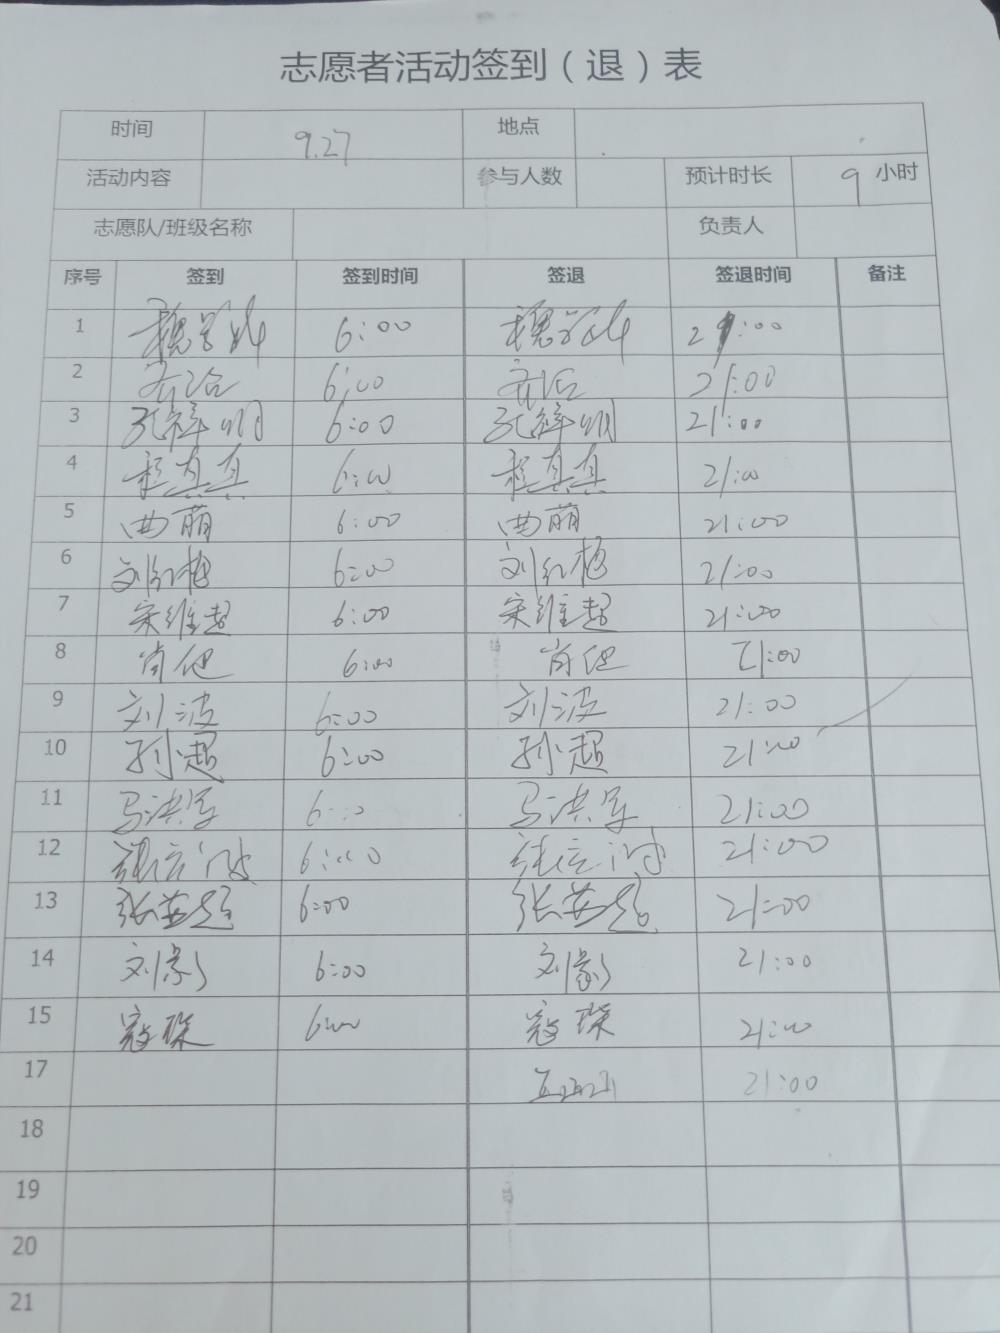 志愿者活动签到（退）表
时间 9.27 地点
活动内容 参与人数 预计时长 9 小时
志愿队/班级名称 负责人
序号 签到 签到时间 签退 签退时间 备注
1 6:00 21:00
2 6:00 21:00
3 6:00 21:00
4 程真真 6:00 程真真 21:00
5 曲萌 6:00 曲萌 21:00
6 刘红梅 6:00 刘红梅 21:00
7 宋维超 6:00 宋维超 21:00
8 6:00 21:00
9 刘波 6:00 刘波 21:00
10 孙超 6:00 孙超 21:00
11 马洪军 6:00 马洪军 21:00
12 6:00 21:00
13 6:00 21:00
14 刘影 6:00 刘影 21:00
15 寇琛 6:00 寇琛 21:00
17 21:00
18
19
20
21